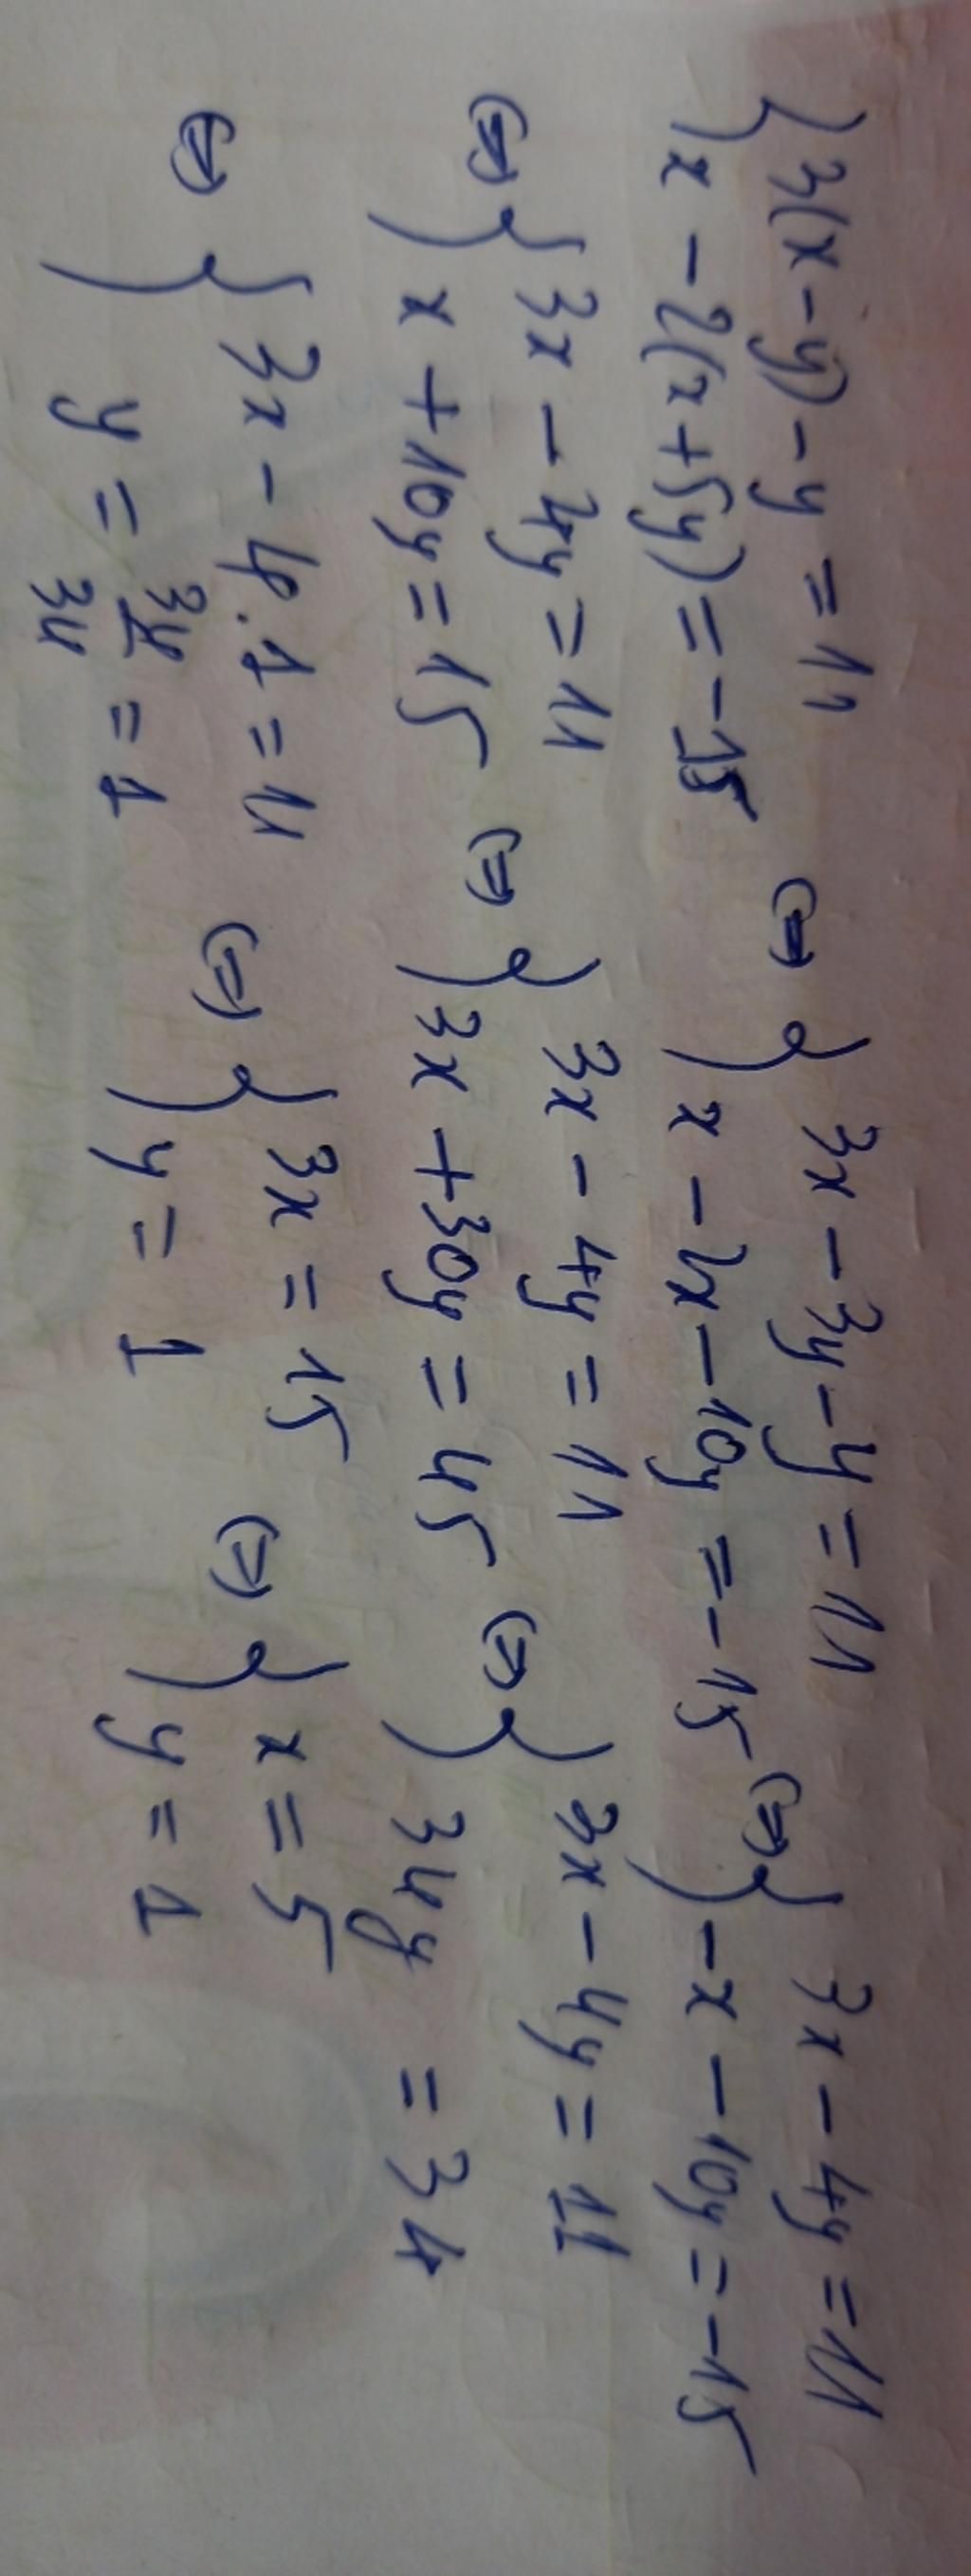 { 3(x-y) - y = 11
{ x - 2(x+5y) = -15 ⇔ { 3x - 3y - y = 11
{ x - 2x - 10y = -15 ⇔ { 3x - 4y = 11
{ -x - 10y = -15
⇔ { 3x - 4y = 11
{ x + 10y = 15 ⇔ { 3x - 4y = 11
{ 3x + 30y = 45 ⇔ { 3x - 4y = 11
{ 34y = 34
⇔ { 3x - 4.1 = 11
{ y = 34/34 = 1 ⇔ { 3x = 15
{ y = 1 ⇔ { x = 5
{ y = 1